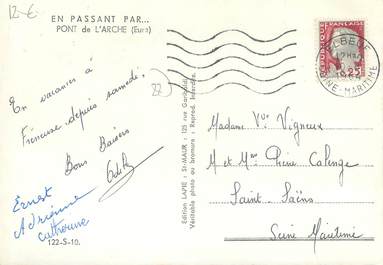 12-€
EN PASSANT PAR...
PONT de L'ARCHE (Eure)
En vacances à
Freneuse depuis samedi.
Bons Baisers
Odile
Ernest
Adrienne
Catherine
122-S-10.
Edition LAPIE - St-MAUR - 125 rue Garibaldi
Véritable photo au bromure - Reprod. Interdite.
ELBEUF
SEINE-MARITIME
REPUBLIQUE FRANÇAISE
Madame Vve Vigneux
M et Mme Pierre
Saint-Saëns
Seine Maritime